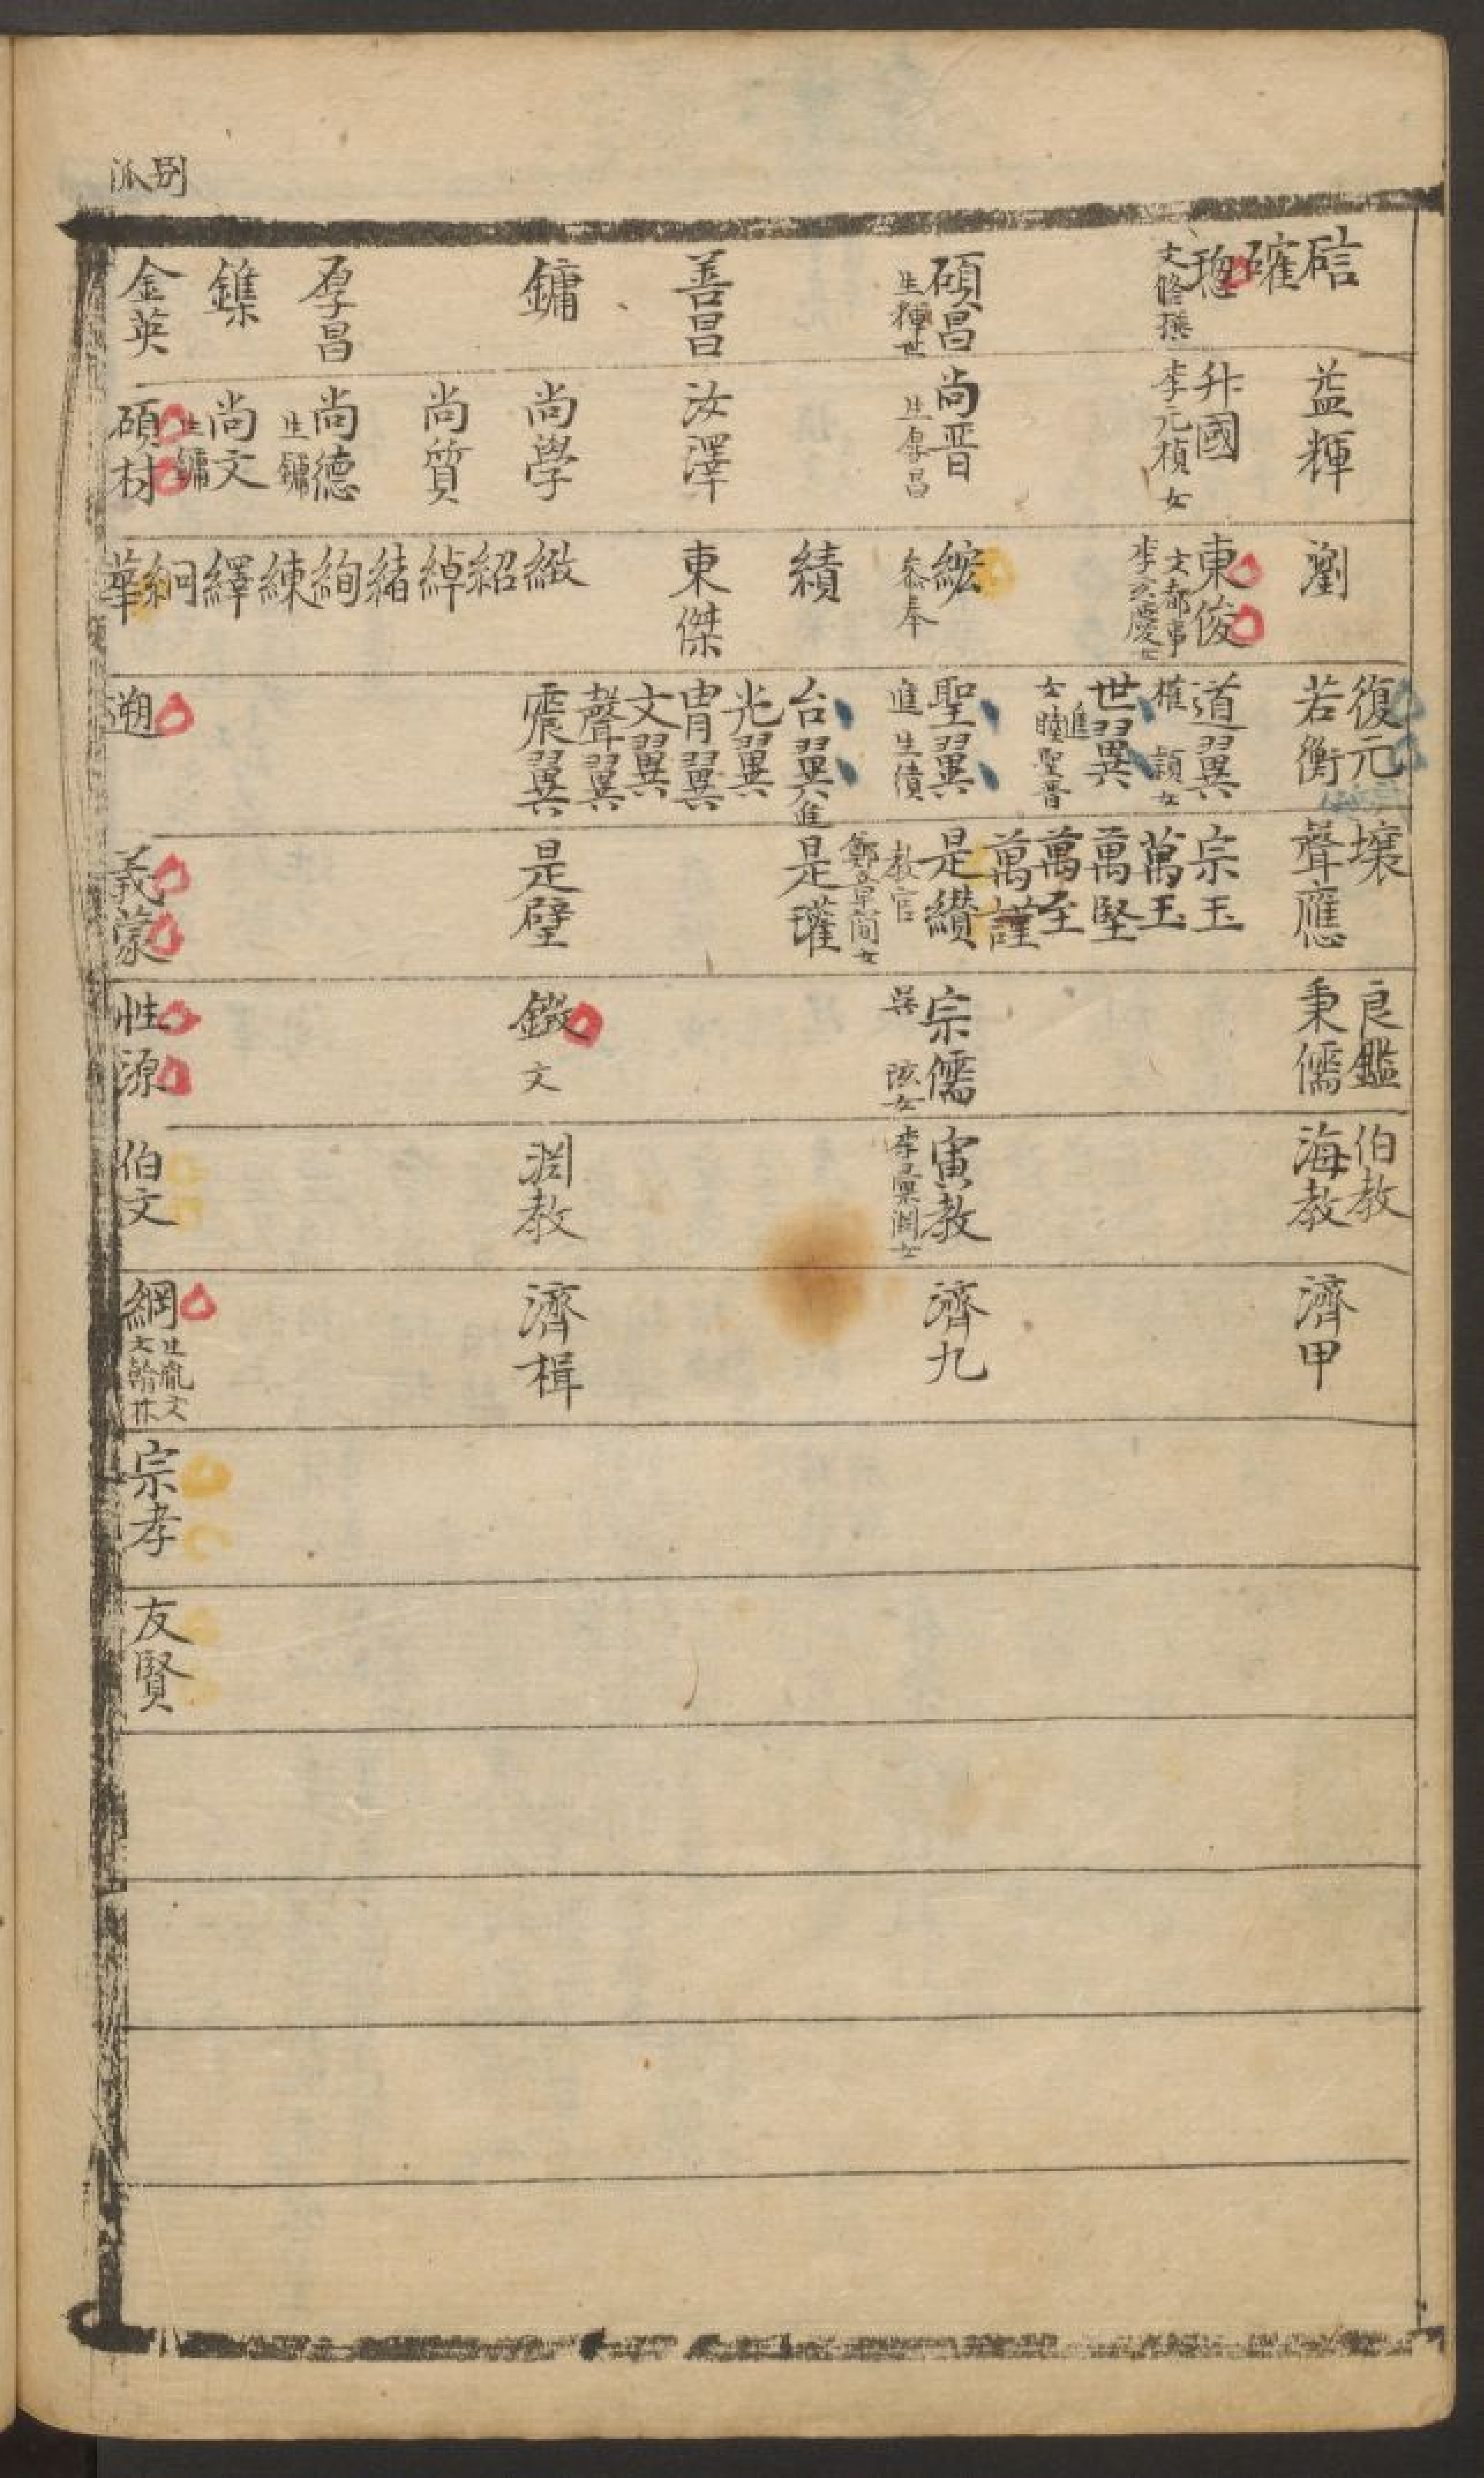 別派
硈
確
穂
文修撰
碩昌
生輝世
善昌
鏞
厚昌
鏶
金英
益輝
升國
李元楨女
尚晋
生厚昌
汝澤
尚學
尚質
尚德
生鏞
尚文
生鏞
碩材
瀏
東俊
文都事
李玄慶女
綋
叅奉
績
東傑
緻
紹
綽
緒
絢
練
繹
絅
華
復元
若衡
道翼
權頴女
世翼
進
女睦聖晋
聖翼
進生債
台翼
進
光翼
冑翼
文翼
聲翼
震翼
遡
壤
聲應
宗玉
萬玉
萬堅
萬至
萬謹
是纘
教官
是瓘
是璧
義蒙
良鑑
秉儒
宗儒
吳 女
文
性源
伯教
海教
寅教
李 淵女
渕教
伯文
濟甲
濟九
濟楫
綱
生胤文
文翰林
宗孝
友賢